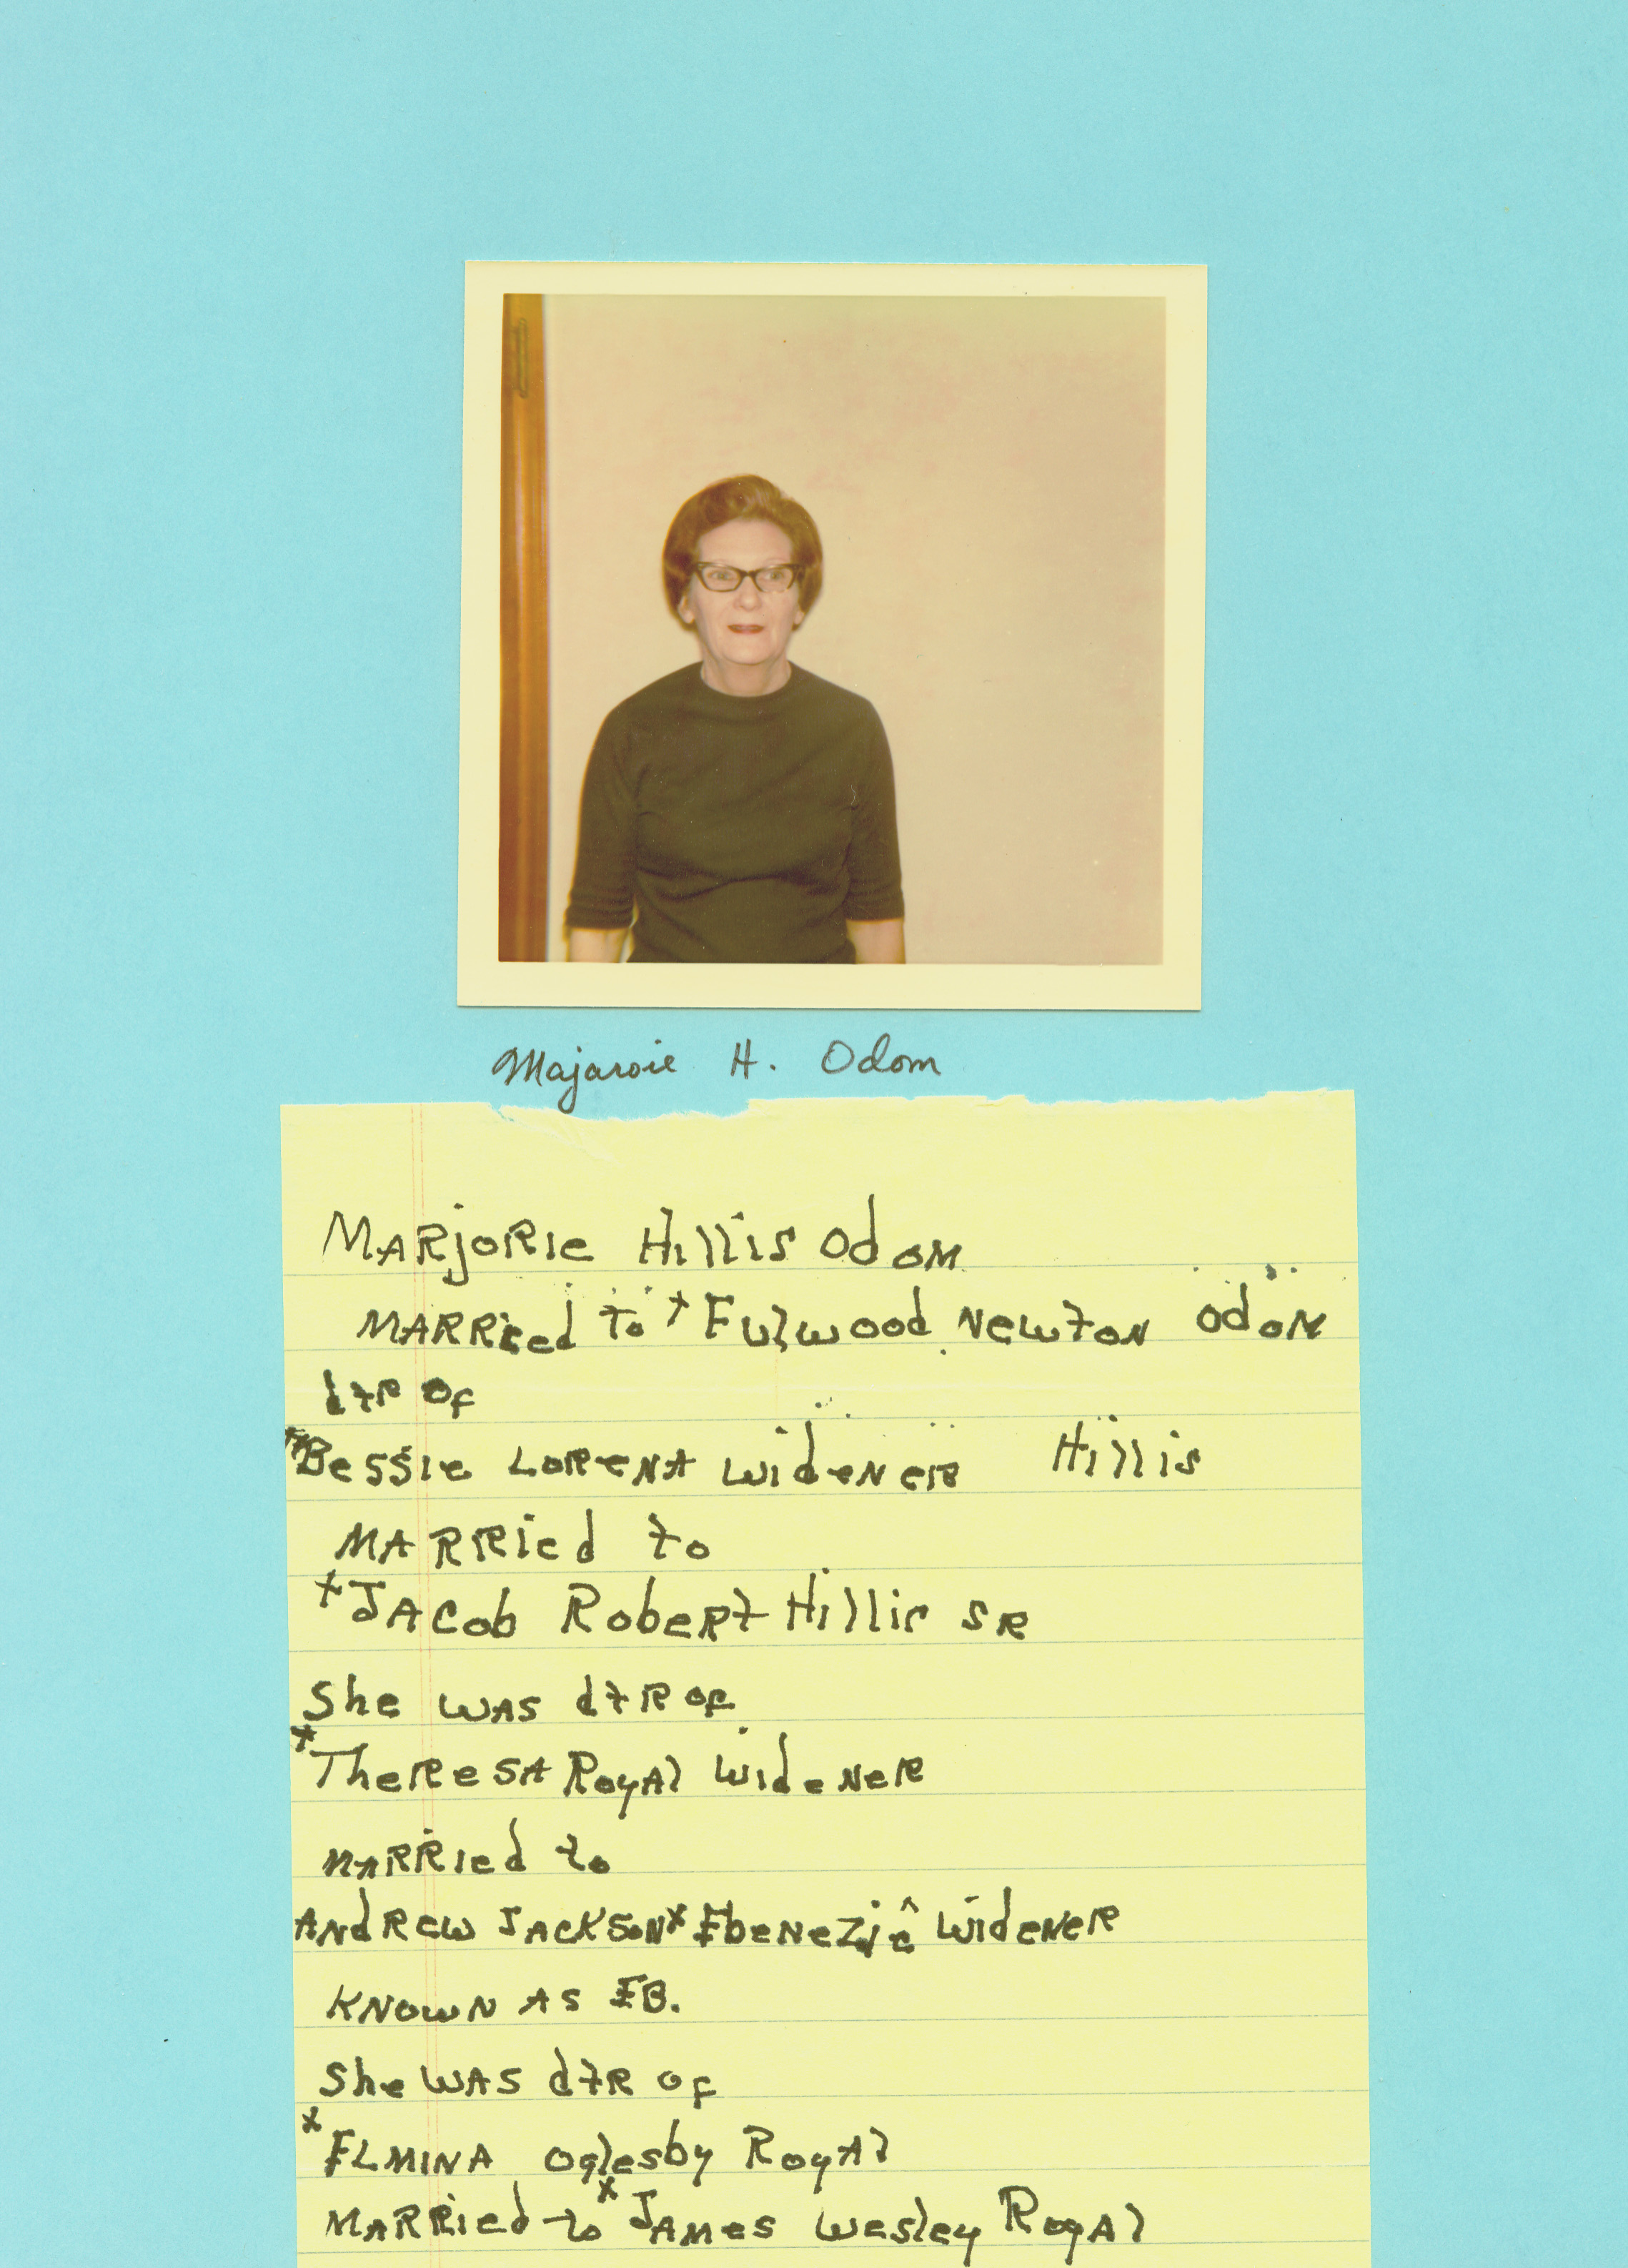 Majaroie H. Odom
MARjoRIe Hillis OdoM
MARRied To x Fulwood NewtoN OdoM
dtR Of
x Bessie LoReNA WideNeR Hillis
MARRied to
x JAcob RobeRt Hillis SR
She WAS dtR of
x TheResA RoyAl WideNeR
MARRied to
ANdRew JAcKSoN x EbeNeZie WideNeR
KNowN AS EB.
She WAS dtR of
x ELMINA Oglesby RoyAl
MARRied to x JAMes Wesley RoyAl